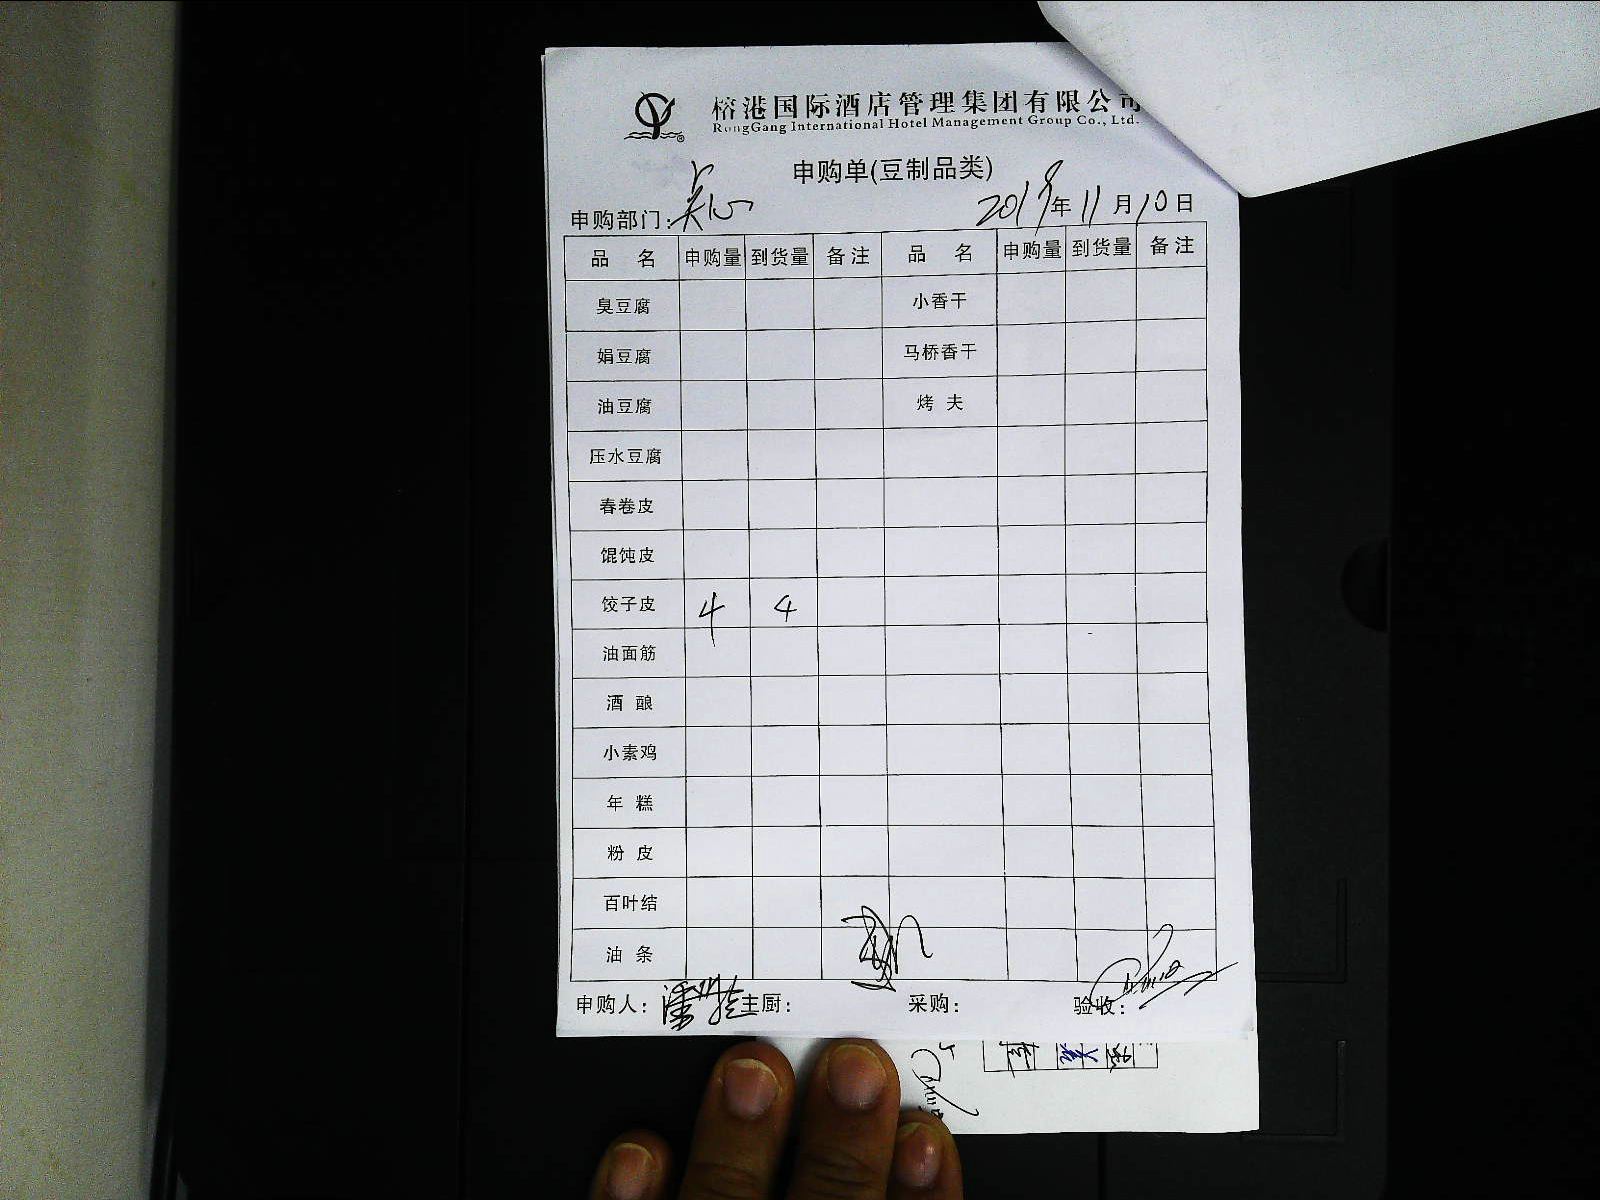 榕港国际酒店管理集团有限公司
RongGang International Hotel Management Group Co., Ltd.
申购单(豆制品类)
申购部门: 2019年11月10日
品 名 申购量 到货量 备注 品 名 申购量 到货量 备注
臭豆腐 小香干
娟豆腐 马桥香干
油豆腐 烤 夫
压水豆腐
春卷皮
馄饨皮
饺子皮 4 4
油面筋
酒 酿
小素鸡
年 糕
粉 皮
百叶结
油 条
申购人: 主厨: 采购: 验收: